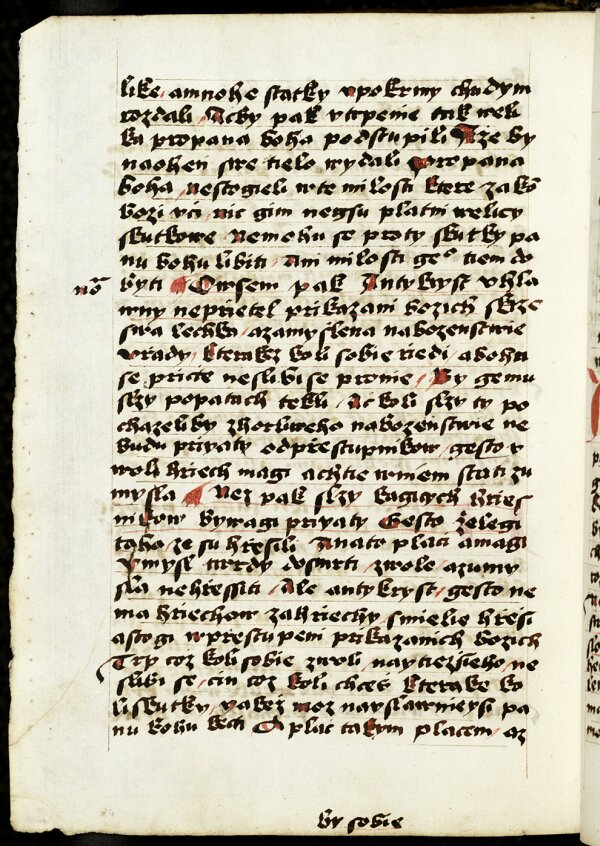 like / a mnohe statky vpokrmy chudym
rozdali / A cby pak vtrpenie tak weli
ka pro pana boha podstupili A ze by
na ohen swe tielo wydali pro pana
boha / nestogieli w te milosti ktere zako
bozi vci / nic gim negsu platni welicy
skutkowe / Nemohu se proty skutky pa
nu bohu libiti / Ani milosti geo tiem do
byti Owsem pak Antykryst vhla
wny neprietel prikazani bozich skrze
swa lechka / a zamyslena nabozenstwie
vrady / kterakez koli sobie riedi / a bohu
se pricie neslibi se pronie / By gemu
slzy po patach tekli / Ac koli slzy ty po
chazeli by z horliweho nabozenstwie ne
budu priyaty od prestupnikow / gesto v
woli hriech magi a chtie w niem stati zu
mysla Nez pak slzy kagicych hries
nikow bywagi priyaty Gesto zelegi
toho / ze su hresili A nato placi a magi
vmysl twrdy do smrti / zwole a zumy
sla nehressiti / Ale antykryst / gesto ne
ma hriechow za hriechy / smielie hresi
a stogi w prestupeni prikazanich bozich
Tzy coz koli sobie zwoli / naytiezsieho / ne
slibi se / cin coz koli chces kterake ko
li skutky / yakez moz nayslawnieysi pa
nu bohu kecti O plac takym placem / az
by sobie